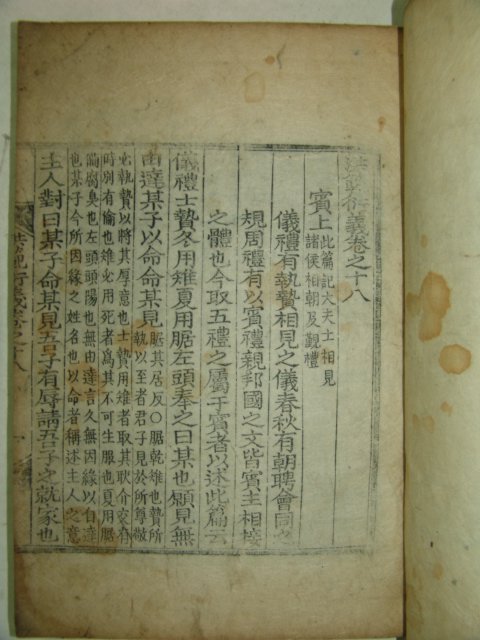 洪範衍義卷之十八
賓上 此篇記大夫士相見
諸侯相朝及覲禮
儀禮有執贄相見之儀春秋有朝聘會同之
規周禮有以賓禮親邦國之文皆賓主相接
之體也今取五禮之屬于賓者以述此篇云
儀禮士贄冬用雉夏用腒左頭奉之曰某也願見無
由達某子以命命某見 腒其居反○腒乾雉也贄所
執以至者君子見於所尊敬
必執贄以將其厚意也士贄用雉者取其耿介交有
時別有倫也雉必用死者爲其不可生服也夏用腒
備腐臭也左頭頭陽也無由達言久無因緣以自達
也某子今所因緣之姓名也以命者稱述主人之意
主人對曰某子命某見吾子有辱請吾子之就家也
洪範衍義卷之十八
一